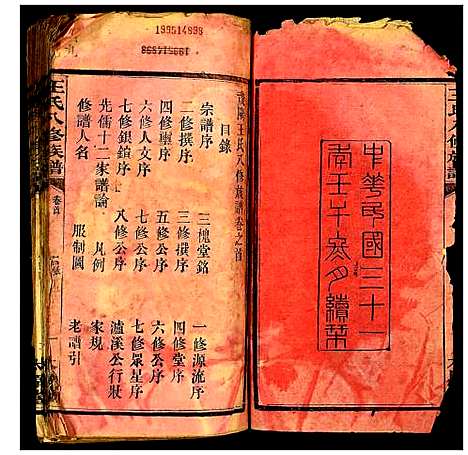 中華民國三十一
年壬午冬月續栞
王氏八修族譜
199514898
王氏八修族譜卷之首
目錄
宗譜序
三槐堂銘
一修源流序
二修撰序
三修撰序
四修堂序
四修璽序
五修公序
六修公序
六修人文序
七修公序
七修眾星序
七修銀鎖序
八修公序
瀘溪公行狀
先儒十二家譜論
凡例
家規
修譜人名
服制圖
老譜引
王氏八修族譜
卷首